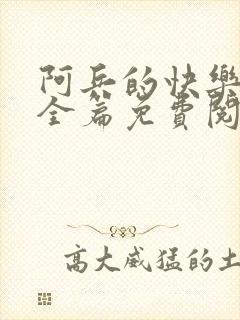 阿兵的快樂
全篇免費閱
高大威猛的土